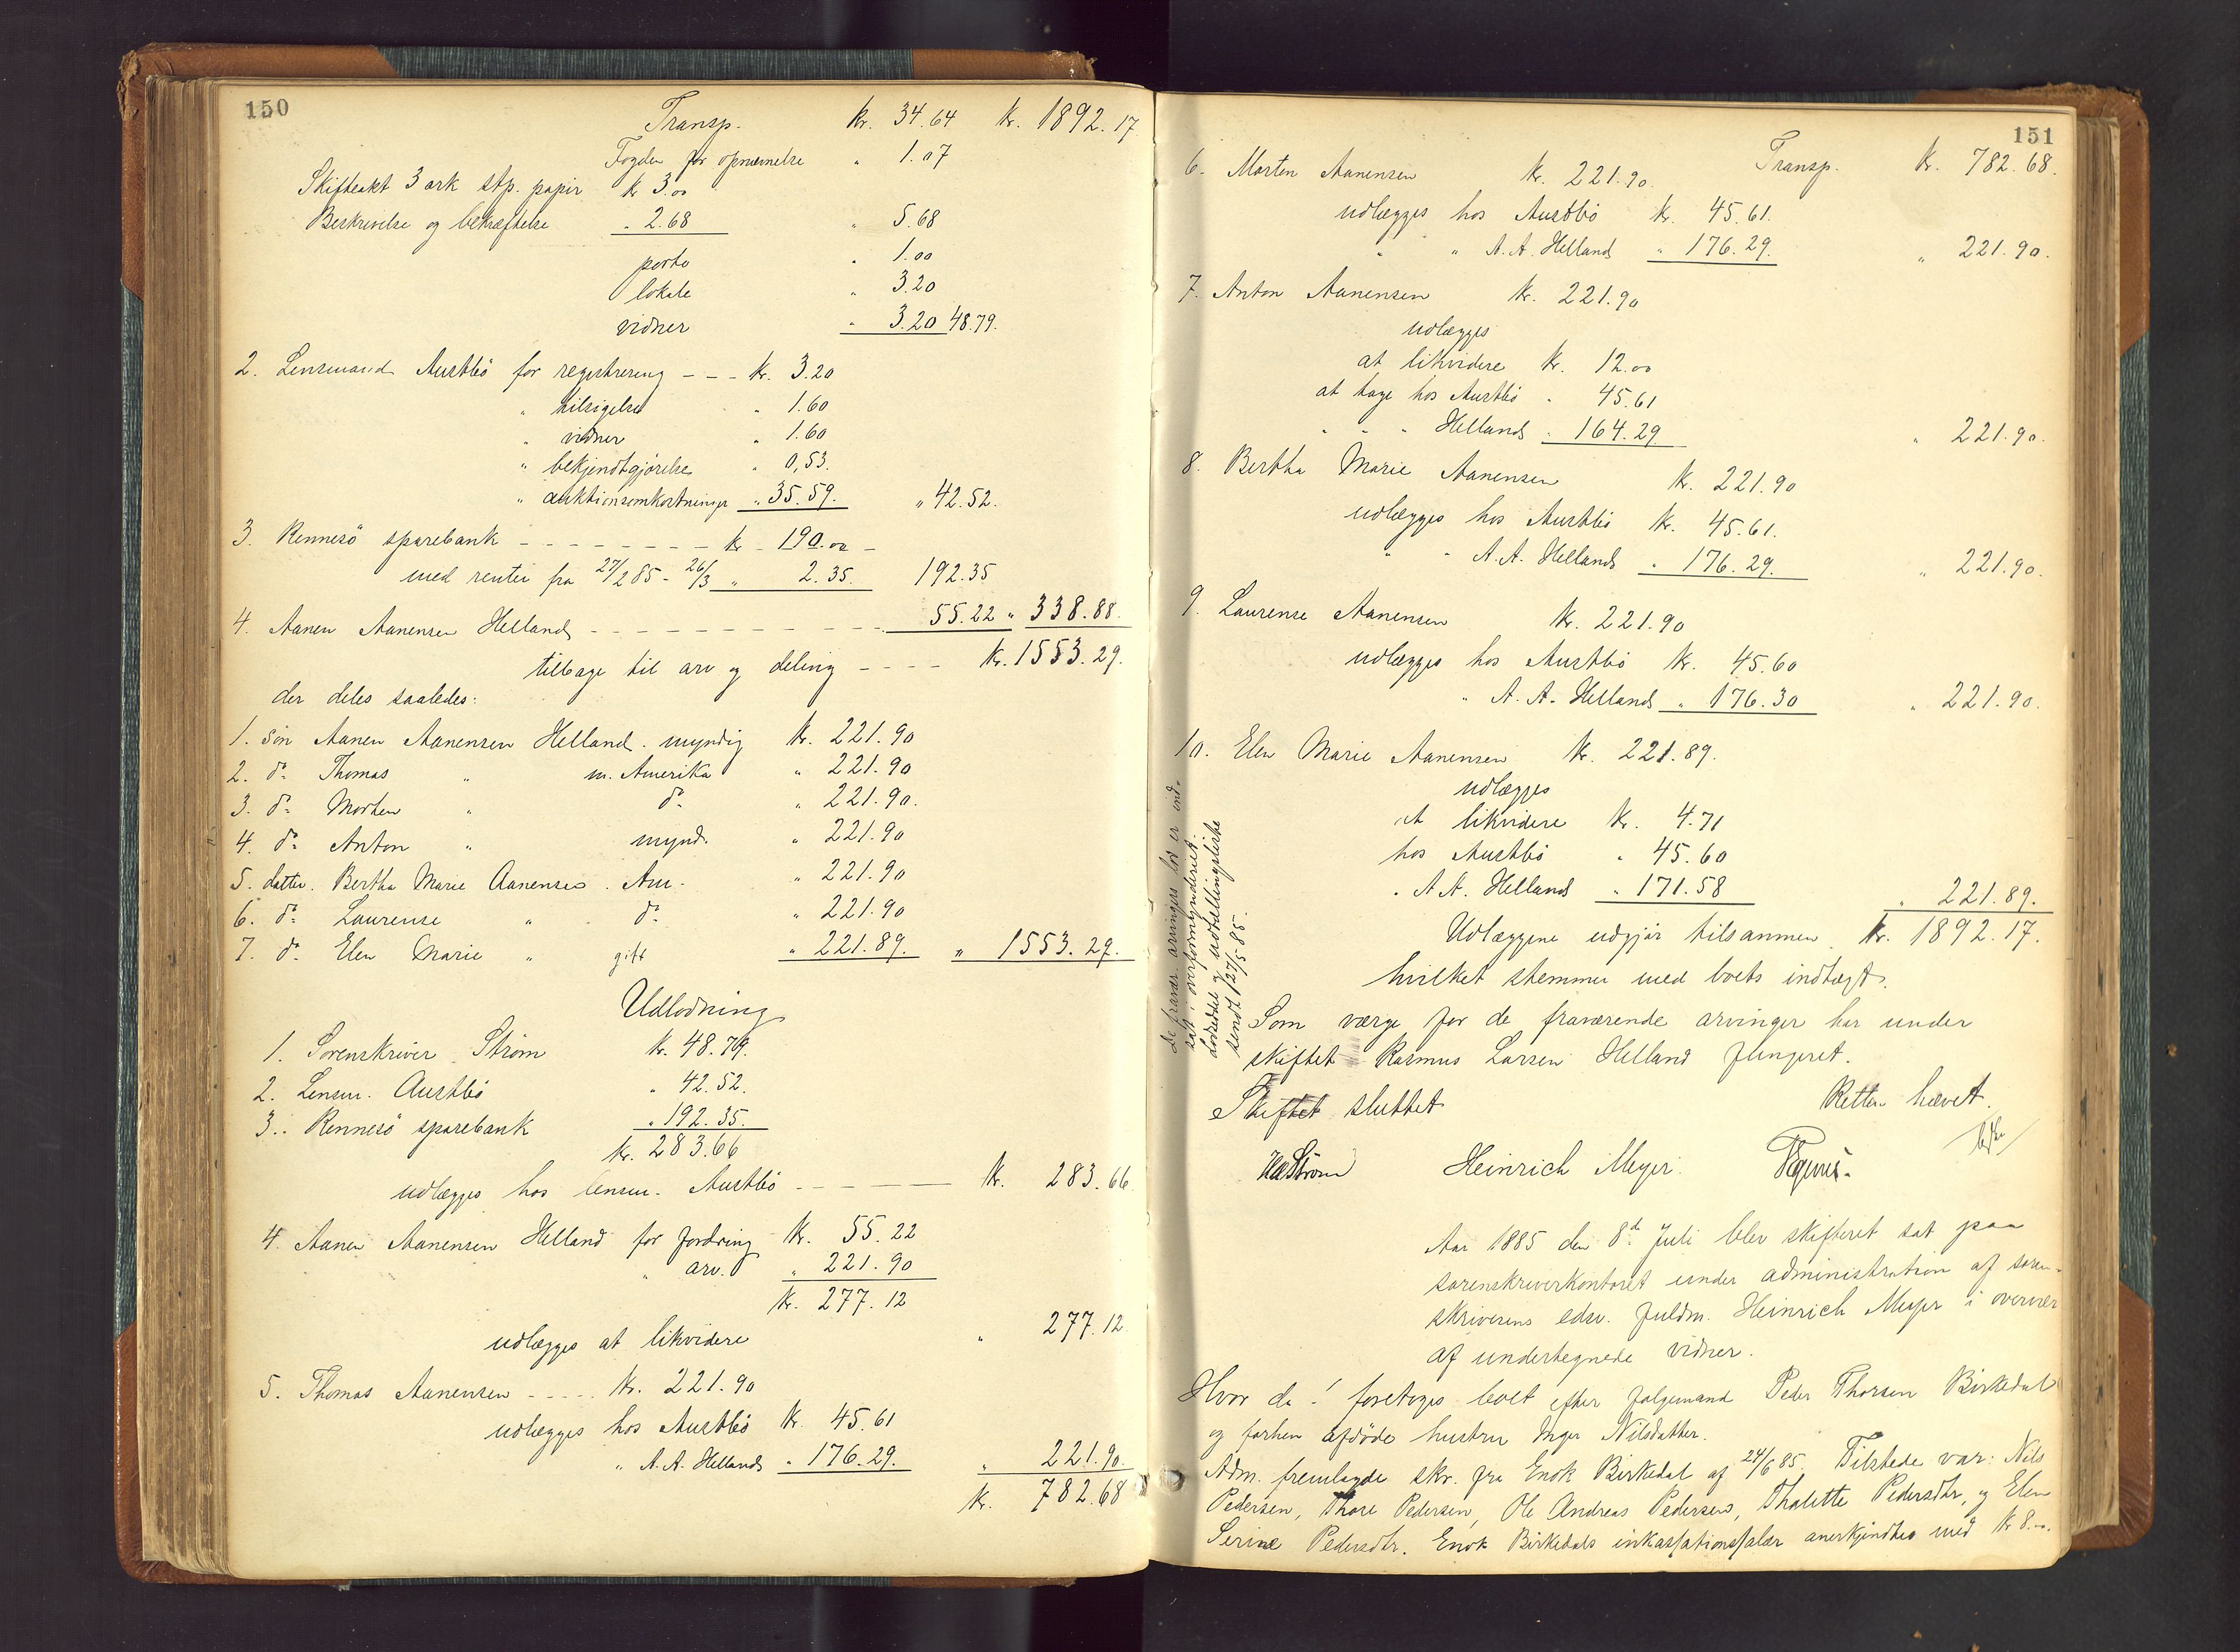 150
Transp. Kr. 34.64 Kr. 1892.17
Fogden for opnævnelse " 1.07
Skifteakt 3 ark stp. papir Kr 3.00
Beskrivelse og bekræftelse " 2.68 " 5.68
porto " 1.00
lokale " 3.20
vidner " 3.20 48.79.
2. Lensmand Austbö for registrering - - - Kr. 3.20
" tilsigelse " 1.60
" vidner " 1.60
" bekjendtgjörelse " 0,53.
" auktionsomkostninger " 35.59. " 42.52.
3. Rennesö sparebank - - - - - - - - Kr - 190.00 -
med renter fra 27/2 85 - 26/3 " 2.35. 192.35
4. Aanen Aanensen Helland - - - - - - - - - - 55.22 " 338.88.
tilbage til arv og deling - - - - Kr. 1553.29.
der deles saaledes:
1. sön Aanen Aanensen Helland. myndig Kr. 221.90
2. do Thomas " m. Amerika " 221.90
3. do Morten " do " 221.90.
4. do Anton " mynd. " 221.90
5. datter. Bertha Marie Aanensen. Am. " 221.90
6. do Laurense " do " 221.90
7. do Elen Marie " gift " 221.89. " 1553.29.
Udlodning
1. Sorenskriver Ström Kr. 48.79.
2. Lensm. Austbö " 42.52.
3. Rennesö sparebank " 192.35.
Kr. 283.66
udlægges hos lensm. Austbö - - - - Kr. 283.66
4. Aanen Aanensen Helland for fordring Kr. 55.22
" arv. " 221.90
Kr. 277.12
udlægges at likvidere " 277.12
5. Thomas Aanensen - - - - Kr. 221.90
udlægges hos Austbö Kr. 45.61
" A. A. Helland " 176.29. " 221.90.
Kr. 782.68
151
Transp. Kr. 782.68.
6. Morten Aanensen Kr. 221.90.
udlægges hos Austbö Kr. 45.61.
" " A. A. Helland " 176.29. " 221.90.
7. Anton Aanensen Kr. 221.90
udlægges
at likvidere Kr. 12.00
at tage hos Austbö " 45.61
" " " Helland " 164.29 " 221.90.
8. Bertha Marie Aanensen Kr. 221.90
udlægges hos Austbö Kr. 45.61.
" " A. A. Helland " 176.29. " 221.90.
9. Laurense Aanensen Kr. 221.90
udlægges hos Austbö Kr. 45.60
" A. A. Helland " 176.30 " 221.90.
10. Elen Marie Aanensen Kr. 221.89.
udlægges
at likvidere Kr. 4.71
hos Austbö " 45.60
" A. A. Helland " 171.58 " 221.89.
Udlæggene udgjör tilsammen Kr. 1892.17.
hvilket stemmer med boets indtægt.
De fravær. arvingers lod er ind-
sat i overformynderiet.
Lodseddel og udbetalingsliste
sendt 27/5 85.
Som værge for de fraværende arvinger har under
skiftet Rasmus Larsen Helland fungeret.
Skiftet sluttet Retten hævet.
Ström Heinrich Meyer.
Aar 1885 den 8de Juli blev skifteret sat paa
sorenskriverkontoret under administration af soren-
skriverens edsv. fuldm. Heinrich Meyer i overvær
af undertegnede vidner.
Hvor da! foretoges boet efter folgemand Peder Thorsen Birkedal
og forhen afdöde hustru Inger Nilsdatter.
Adm. fremlagde skr. fra Enok Birkedal af 24/6 85. Tilstede var: Nils
Pedersen, Thore Pedersen, Ole Andreas Pedersen, Thalette Pedersdtr, og Elen
Serine Pedersdtr. Enok Birkedals inkassationssalær anerkjendtes med Kr 8.00.